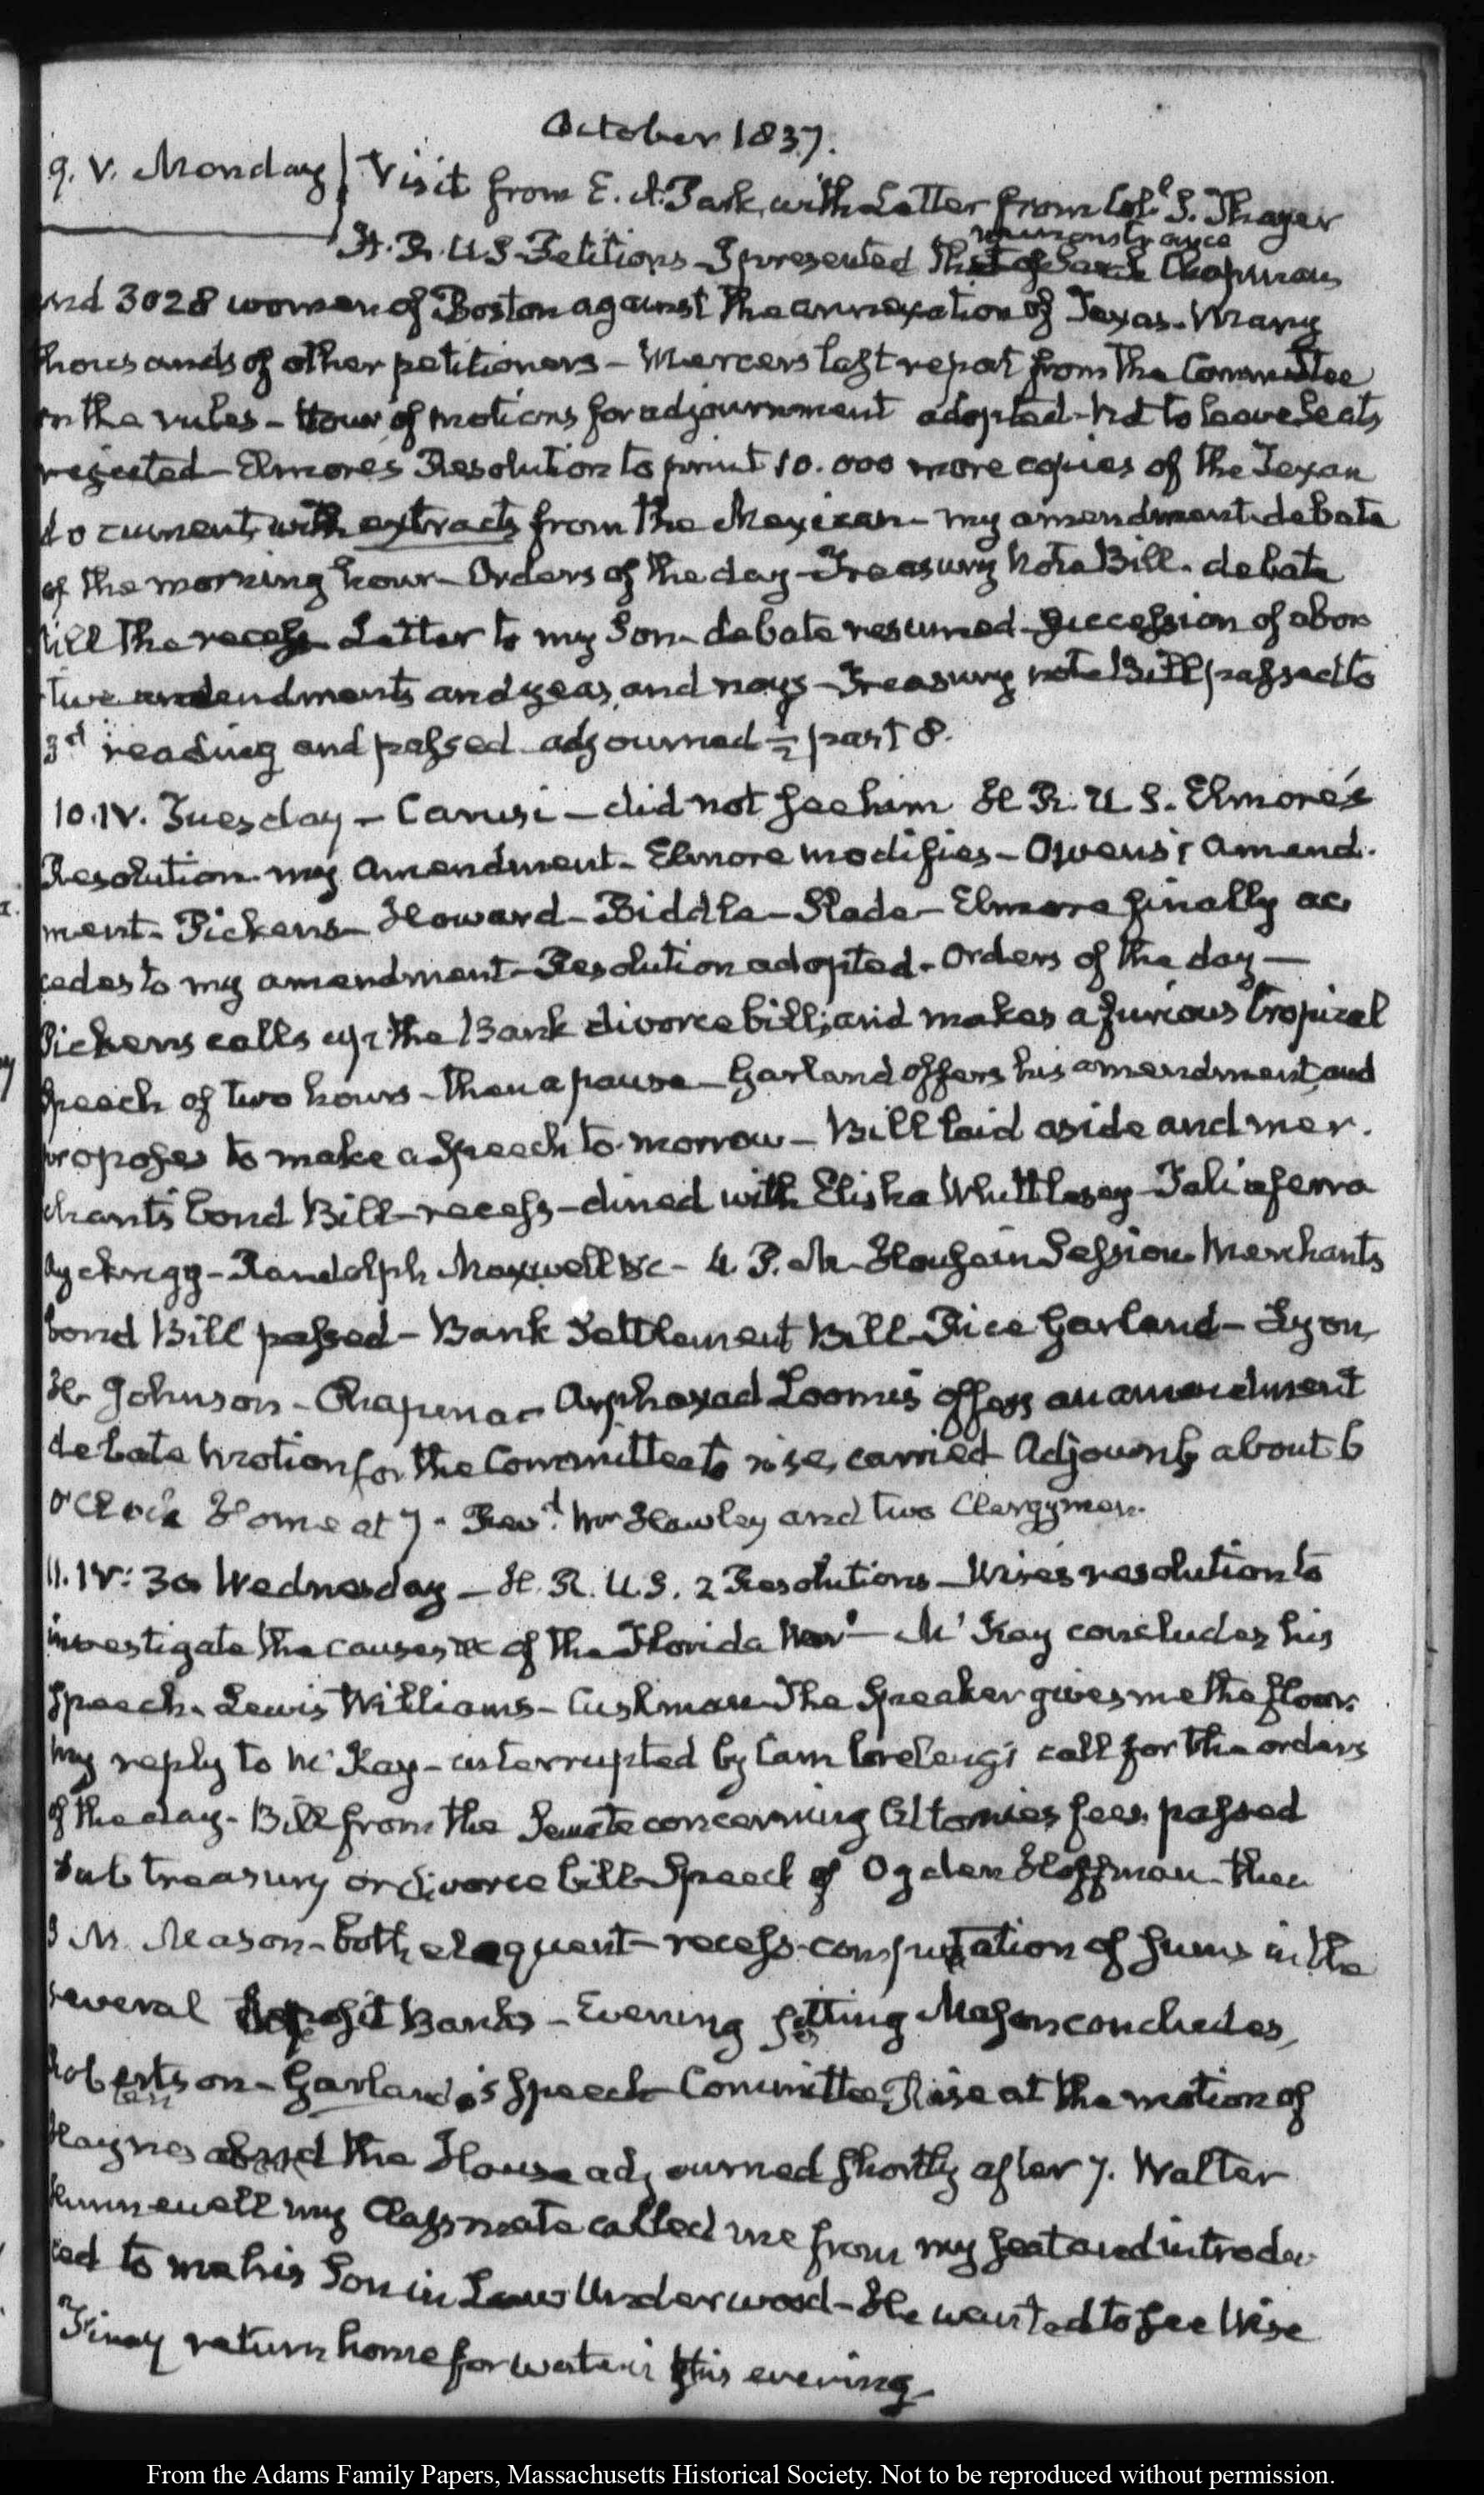 October 1837.
9. V. Monday Visit from E. A. Park, with Letter from Col.l S. Thayer
remonstrance
H. R. U.S. Petitions I presented that of Sarah Chapman
and 3028 women of Boston against the annexation of Texas. Many
thousands of other petitioners – Mercer's last report from the Committee
on the rules – Hour of motions for adjournment adopted – Not to leave Seats
rejected – Elmore's Resolution to print 10.000 more copies of the Texan
document, with extracts from the Mexican – my amendment. debate
of the morning hour – Orders of the day – Treasury Note Bill. debate
till the recess Letter to my Son – debate resumed – Succession of abor
tive amendments and yeas, and nays – Treasury note Bill passed to
3d reading and passed adjourned ½ past 8.
10. IV. Tuesday – Carusi – did not see him H. R. U. S. Elmore's
Resolution. my Amendment – Elmore modifies – Owens's Amend.
ment – Pickens – Howard – Biddle – Slade – Elmore finally ac
cedes to my amendment – Resolution adopted – Orders of the day –
Pickens calls up the Bank divorce bill; and makes a furious tropical
Speech of two hours – then a pause – Garland offers his amendment, and
proposes to make a Speech to-morrow – Bill laid aside and mer.
chants bond Bill – recess – dined with Elisha Whittlesey – Taliaferro
Ryckrigg – Randolph Maxwell &c – 4 P. M. House in Session Merchants
bond Bill passed – Bank Settlement Bill – Rice Garland – Lyon,
H. Johnson – Chapman – Arphaxad Loomis offers an amendment
debate Motion for the Committee to rise, carried Adjourned about 6
O'Clock Home at 7 – Revd. Wm. Hawley and two Clergymen.
11. IV: 30 Wednesday – H. R. U. S. 2 Resolutions – Wise's resolution to
investigate the causes &c of the Florida War – McKay concludes his
Speech. Lewis Williams – Cushman The Speaker gives me the floor.
My reply to McKay – interrupted by Cambreleng's call for the orders
of the day – Bill from the Senate concerning Attornies fees, passed
Sub treasury or divorce bill – Speech of Ogden Hoffman – then
J. M. Mason – both eloquent – recess – computation of sums in the
several deposit Banks – Evening sitting Mason concludes,
Robertson – Garland's Speech – Committee Rise at the motion of
Haynes and the House adjourned shortly after 7. Walter
Hunnewell my Classmate called me from my seat and introdu
ced to me his Son in Law Underwood – He wanted to see Wise
Finey return home for water this evening
From the Adams Family Papers, Massachusetts Historical Society. Not to be reproduced without permission.